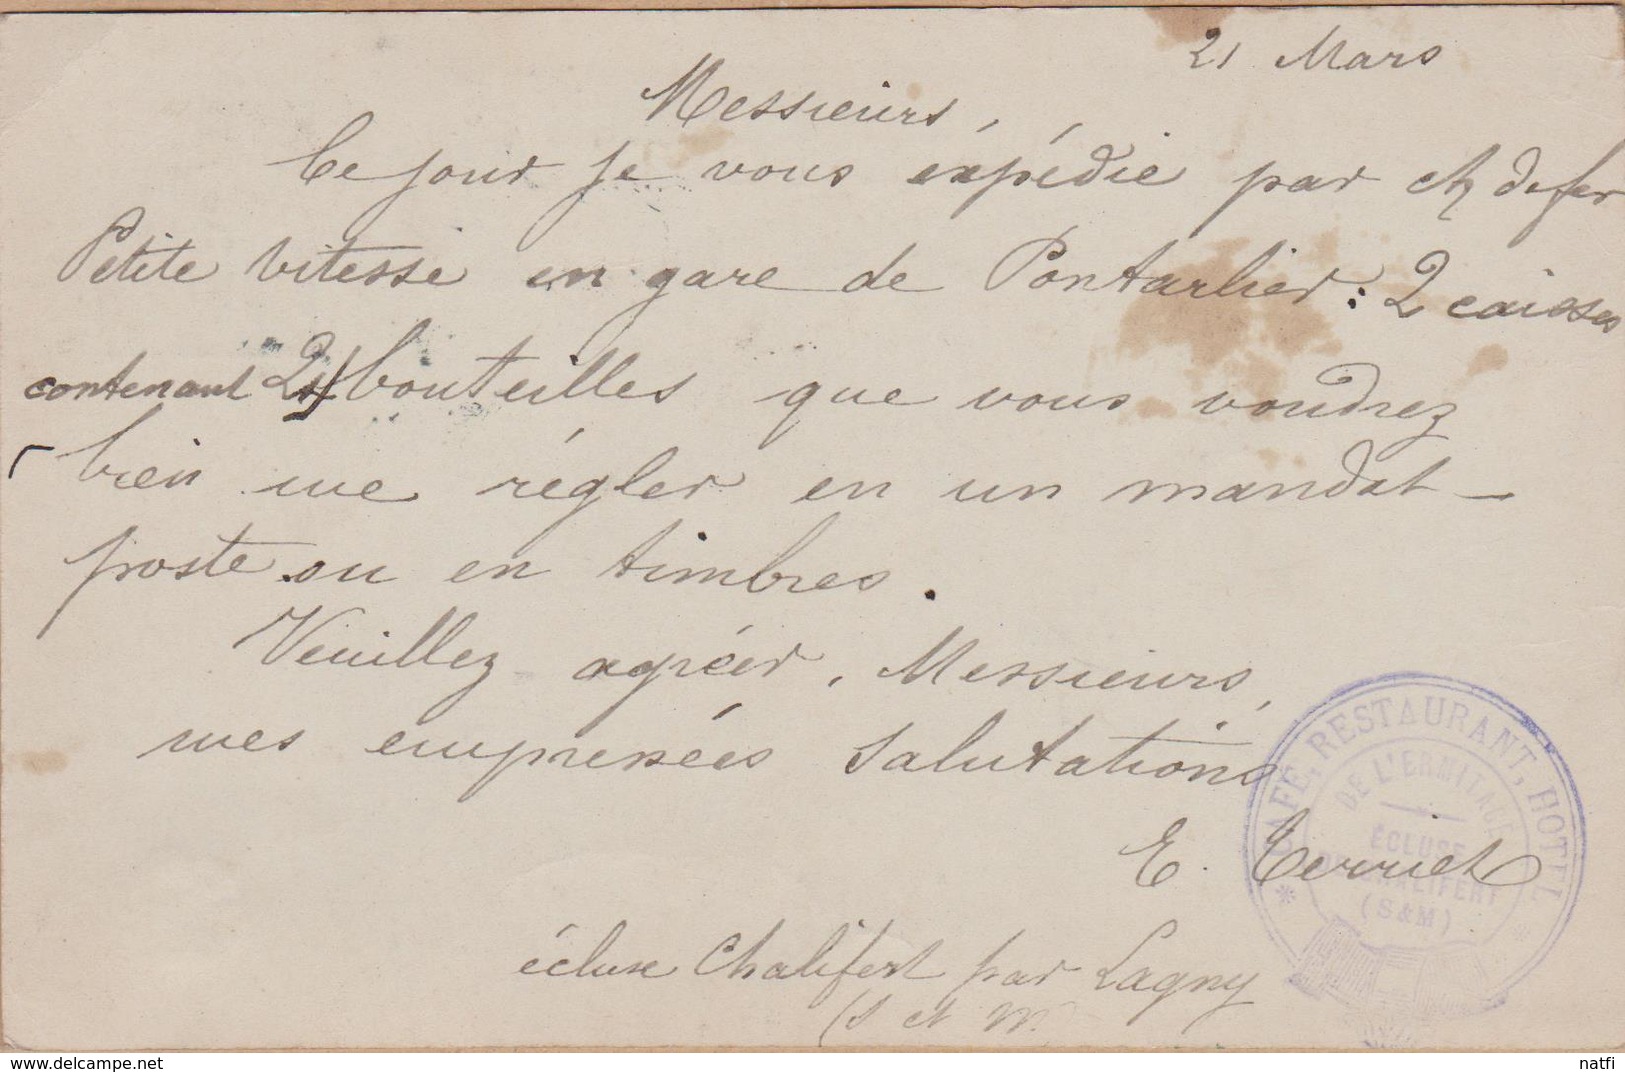 21 Mars
Messieurs,
Ce jour je vous expédie par ch de fer
Petite vitesse en gare de Pontarlier : 2 caisses
contenant bouteilles que vous voudrez
bien me régler en un mandat-
poste ou en timbres.
Veuillez agréer, Messieurs,
mes empressées salutations
E. Terriet
écluse Chalifert par Lagny
(S et M
* CAFÉ, RESTAURANT, HOTEL *
DE L'ERMITAGE
ÉCLUSE
DE CHALIFERT
(S & M)
delcampe.net
natfi